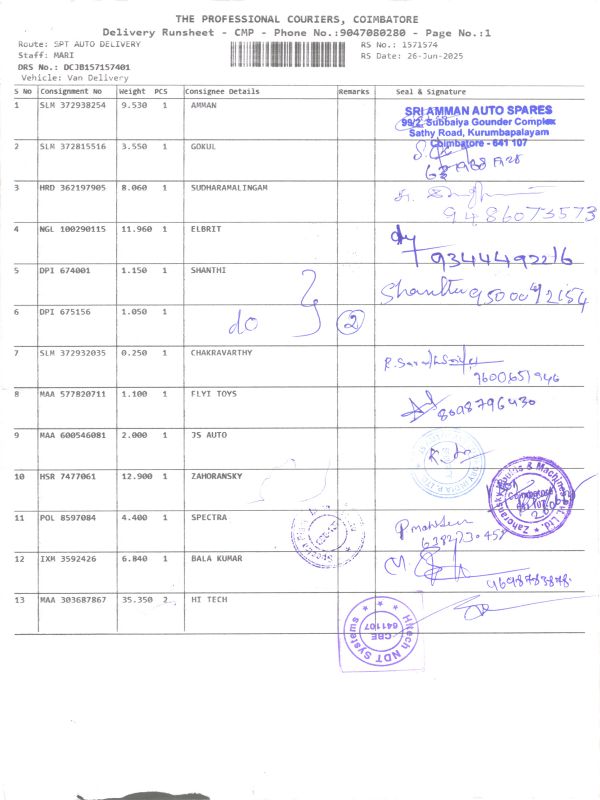 THE PROFESSIONAL COURIERS, COIMBATORE
Delivery Runsheet - CMP - Phone No.:9047080280 - Page No.:1
Route: SPT AUTO DELIVERY
RS No.: 1571574
Staff: MARI
RS Date: 26-Jun-2025
DRS No.: DCJB157157401
Vehicle: Van Delivery
S No Consignment No Weight PCS Consignee Details Remarks Seal & Signature
1 SLM 372938254 9.530 1 AMMAN
SRI AMMAN AUTO SPARES
99/2, Subbaiya Gounder Complex
Sathy Road, Kurumbapalayam
Coimbatore - 641 107
2 SLM 372815516 3.550 1 GOKUL
3 HRD 362197905 8.060 1 SUDHARAMALINGAM
9486073573
4 NGL 100290115 11.960 1 ELBRIT
9344492216
5 DPI 674001 1.150 1 SHANTHI
Shanthi
6 DPI 675156 1.050 1
do 2
7 SLM 372932035 0.250 1 CHAKRAVARTHY
9600651946
8 MAA 577820711 1.100 1 FLYI TOYS
8098796430
9 MAA 600546081 2.000 1 JS AUTO
10 HSR 7477061 12.900 1 ZAHORANSKY
Zahoransky Moulds & Machines Pvt. Ltd.
Coimbatore
641 107
11 POL 8597084 4.400 1 SPECTRA
12 IXM 3592426 6.840 1 BALA KUMAR
13 MAA 303687867 35.350 2 HI TECH
Hitech NDT Systems
CBE
641107